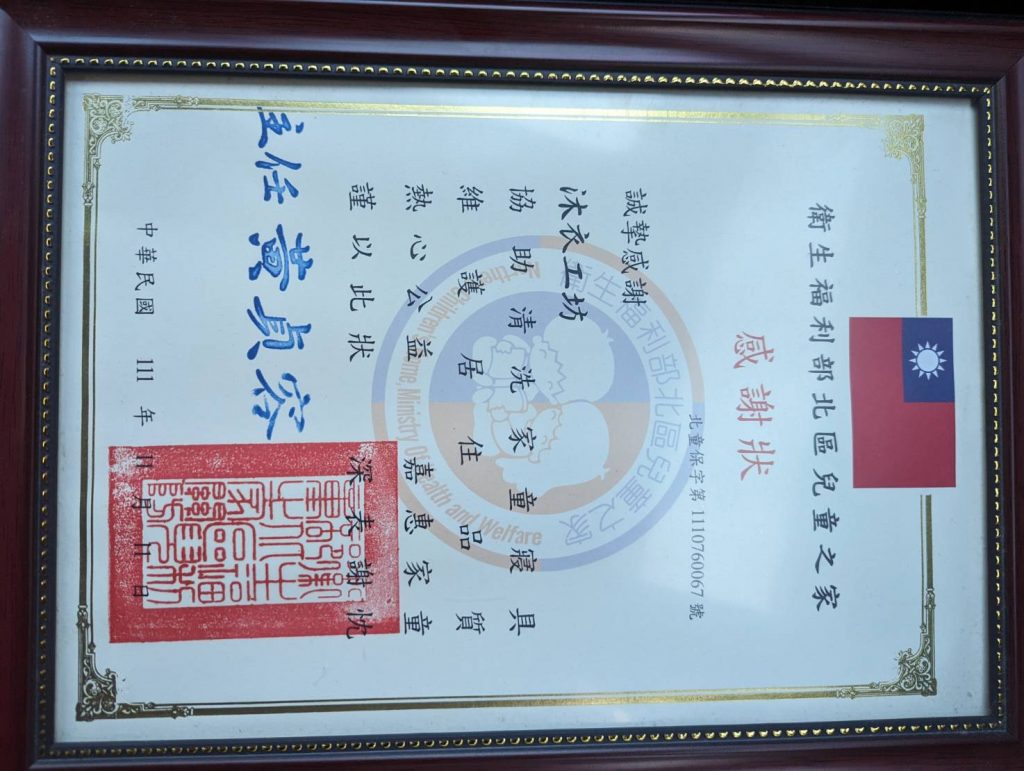 衛生福利部北區兒童之家
感謝狀
北童保字第 1110760067 號
誠摯感謝
沐衣工坊
協助清洗家童寢具
維護居住品質
熱心公益嘉惠家童
謹以此狀 深表謝忱
主任 黃貞容
中華民國 111 年 11 月 11 日
衛生福利部北區兒童之家
Northern Children's Home, Ministry Of Health and Welfare